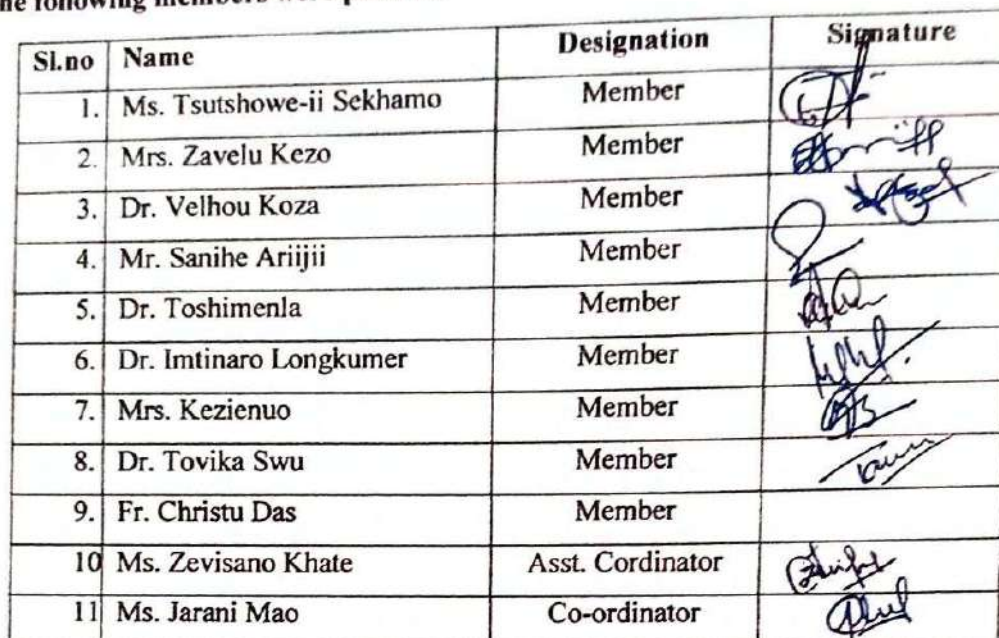 he following members were
Sl.no Name Designation Signature
1. Ms. Tsutshowe-ii Sekhamo Member
2. Mrs. Zavelu Kezo Member
3. Dr. Velhou Koza Member
4. Mr. Sanihe Ariijii Member
5. Dr. Toshimenla Member
6. Dr. Imtinaro Longkumer Member
7. Mrs. Kezienuo Member
8. Dr. Tovika Swu Member
9. Fr. Christu Das Member
10 Ms. Zevisano Khate Asst. Cordinator
11 Ms. Jarani Mao Co-ordinator